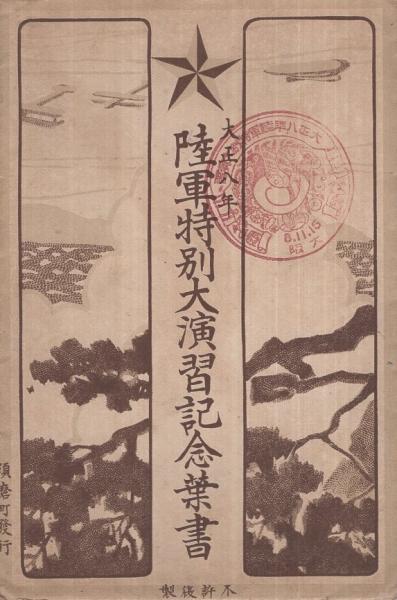 大正八年
陸軍特別大演習記念葉書
大正八年陸軍特
8.11.15
大阪
須磨町發行
不許複製